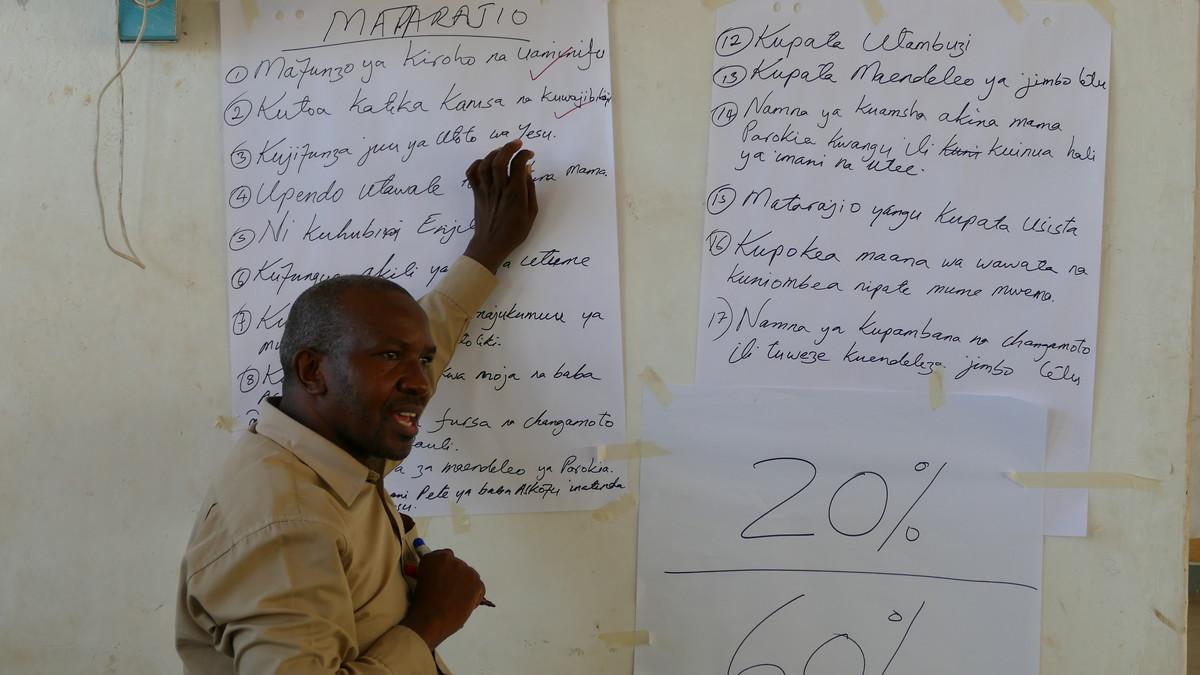 MATARAJIO
① Mafunzo ya Kiroho na Uaminifu
② Kutoa katika Kanisa na Kuwajibika
③ Kujifunza juu ya Utoto wa Yesu.
④ Upendo Utawale mama.
⑤ Ni Kuhubiri
⑥ Kufungua akili ya Utume
⑦ majukumuu ya
⑧ Kwa moja na baba
fursa na changamoto
za maendeleo ya Parokia.
Pete ya baba Askofu inatenda
⑫ Kupata Utambuzi
⑬ Kupata Maendeleo ya jimbo letu
⑭ Namna ya kuamsha akina mama
Parokia Kwangu ili kuinua hali
ya imani na Utee.
⑮ Matarajio yangu Kupata Usista
⑯ Kupokea maana wa wawata na
kuniombea nipate mume mwema.
17) Namna ya Kupambana na changamoto
ili tuweze kuendeleza jimbo letu
20%
60%